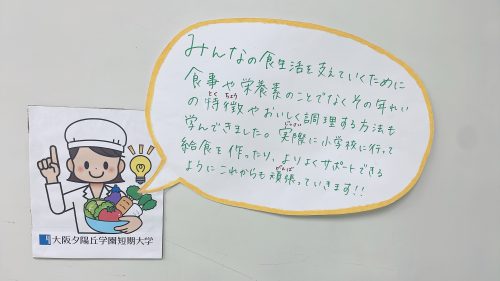 みんなの食生活を支えていくために
食事や栄養素のことでなくその年れい
の特徴やおいしく調理する方法も
とくちょう
学んできました。実際に小学校に行って
じっさい
給食を作ったり、よりよくサポートできる
ようにこれからも頑張っていきます!!
がんば
大阪夕陽丘学園短期大学